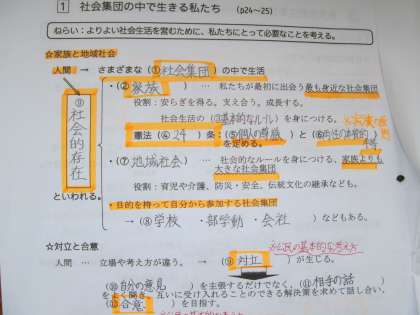 1 社会集団の中で生きる私たち (p24~25)
ねらい：よりよい社会生活を営むために、私たちにとって必要なことを考える。
☆家族と地域社会
人間 → さまざまな（①社会集団）の中で生活
・（②家族） … 私たちが最初に出会う最も身近な社会集団
役割：安らぎを得る。支え合う。成長する。
社会生活の（③基本的なルール）を身につける。
憲法（④24）条：（⑤個人の尊厳）と（⑥両性の本質的平等）
を定める。
⑨社会的存在
といわれる。
・（⑦地域社会） … 社会的なルールを身につける、家族よりも
大きな社会集団
役割：育児や介護、防災・安全、伝統文化の継承なども。
・目的を持って自分から参加する社会集団
→（⑧学校 ・部活動・会社）などもある。
☆対立と合意
人間 … 立場や考え方が違う。→（⑨対立）が生じる。
（⑩自分の意見）を主張するだけでなく、（⑪相手の話）
をよく聞き、互いに受け入れることのできる解決策を求めて話し合い、
（⑫合意）を目指す。